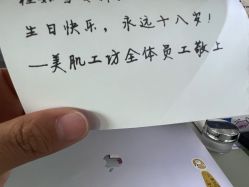 生日快乐，永远十八岁！
—美肌工坊全体员工敬上